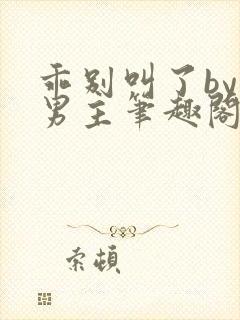 乖别叫了by
男主笔趣阁
索顿